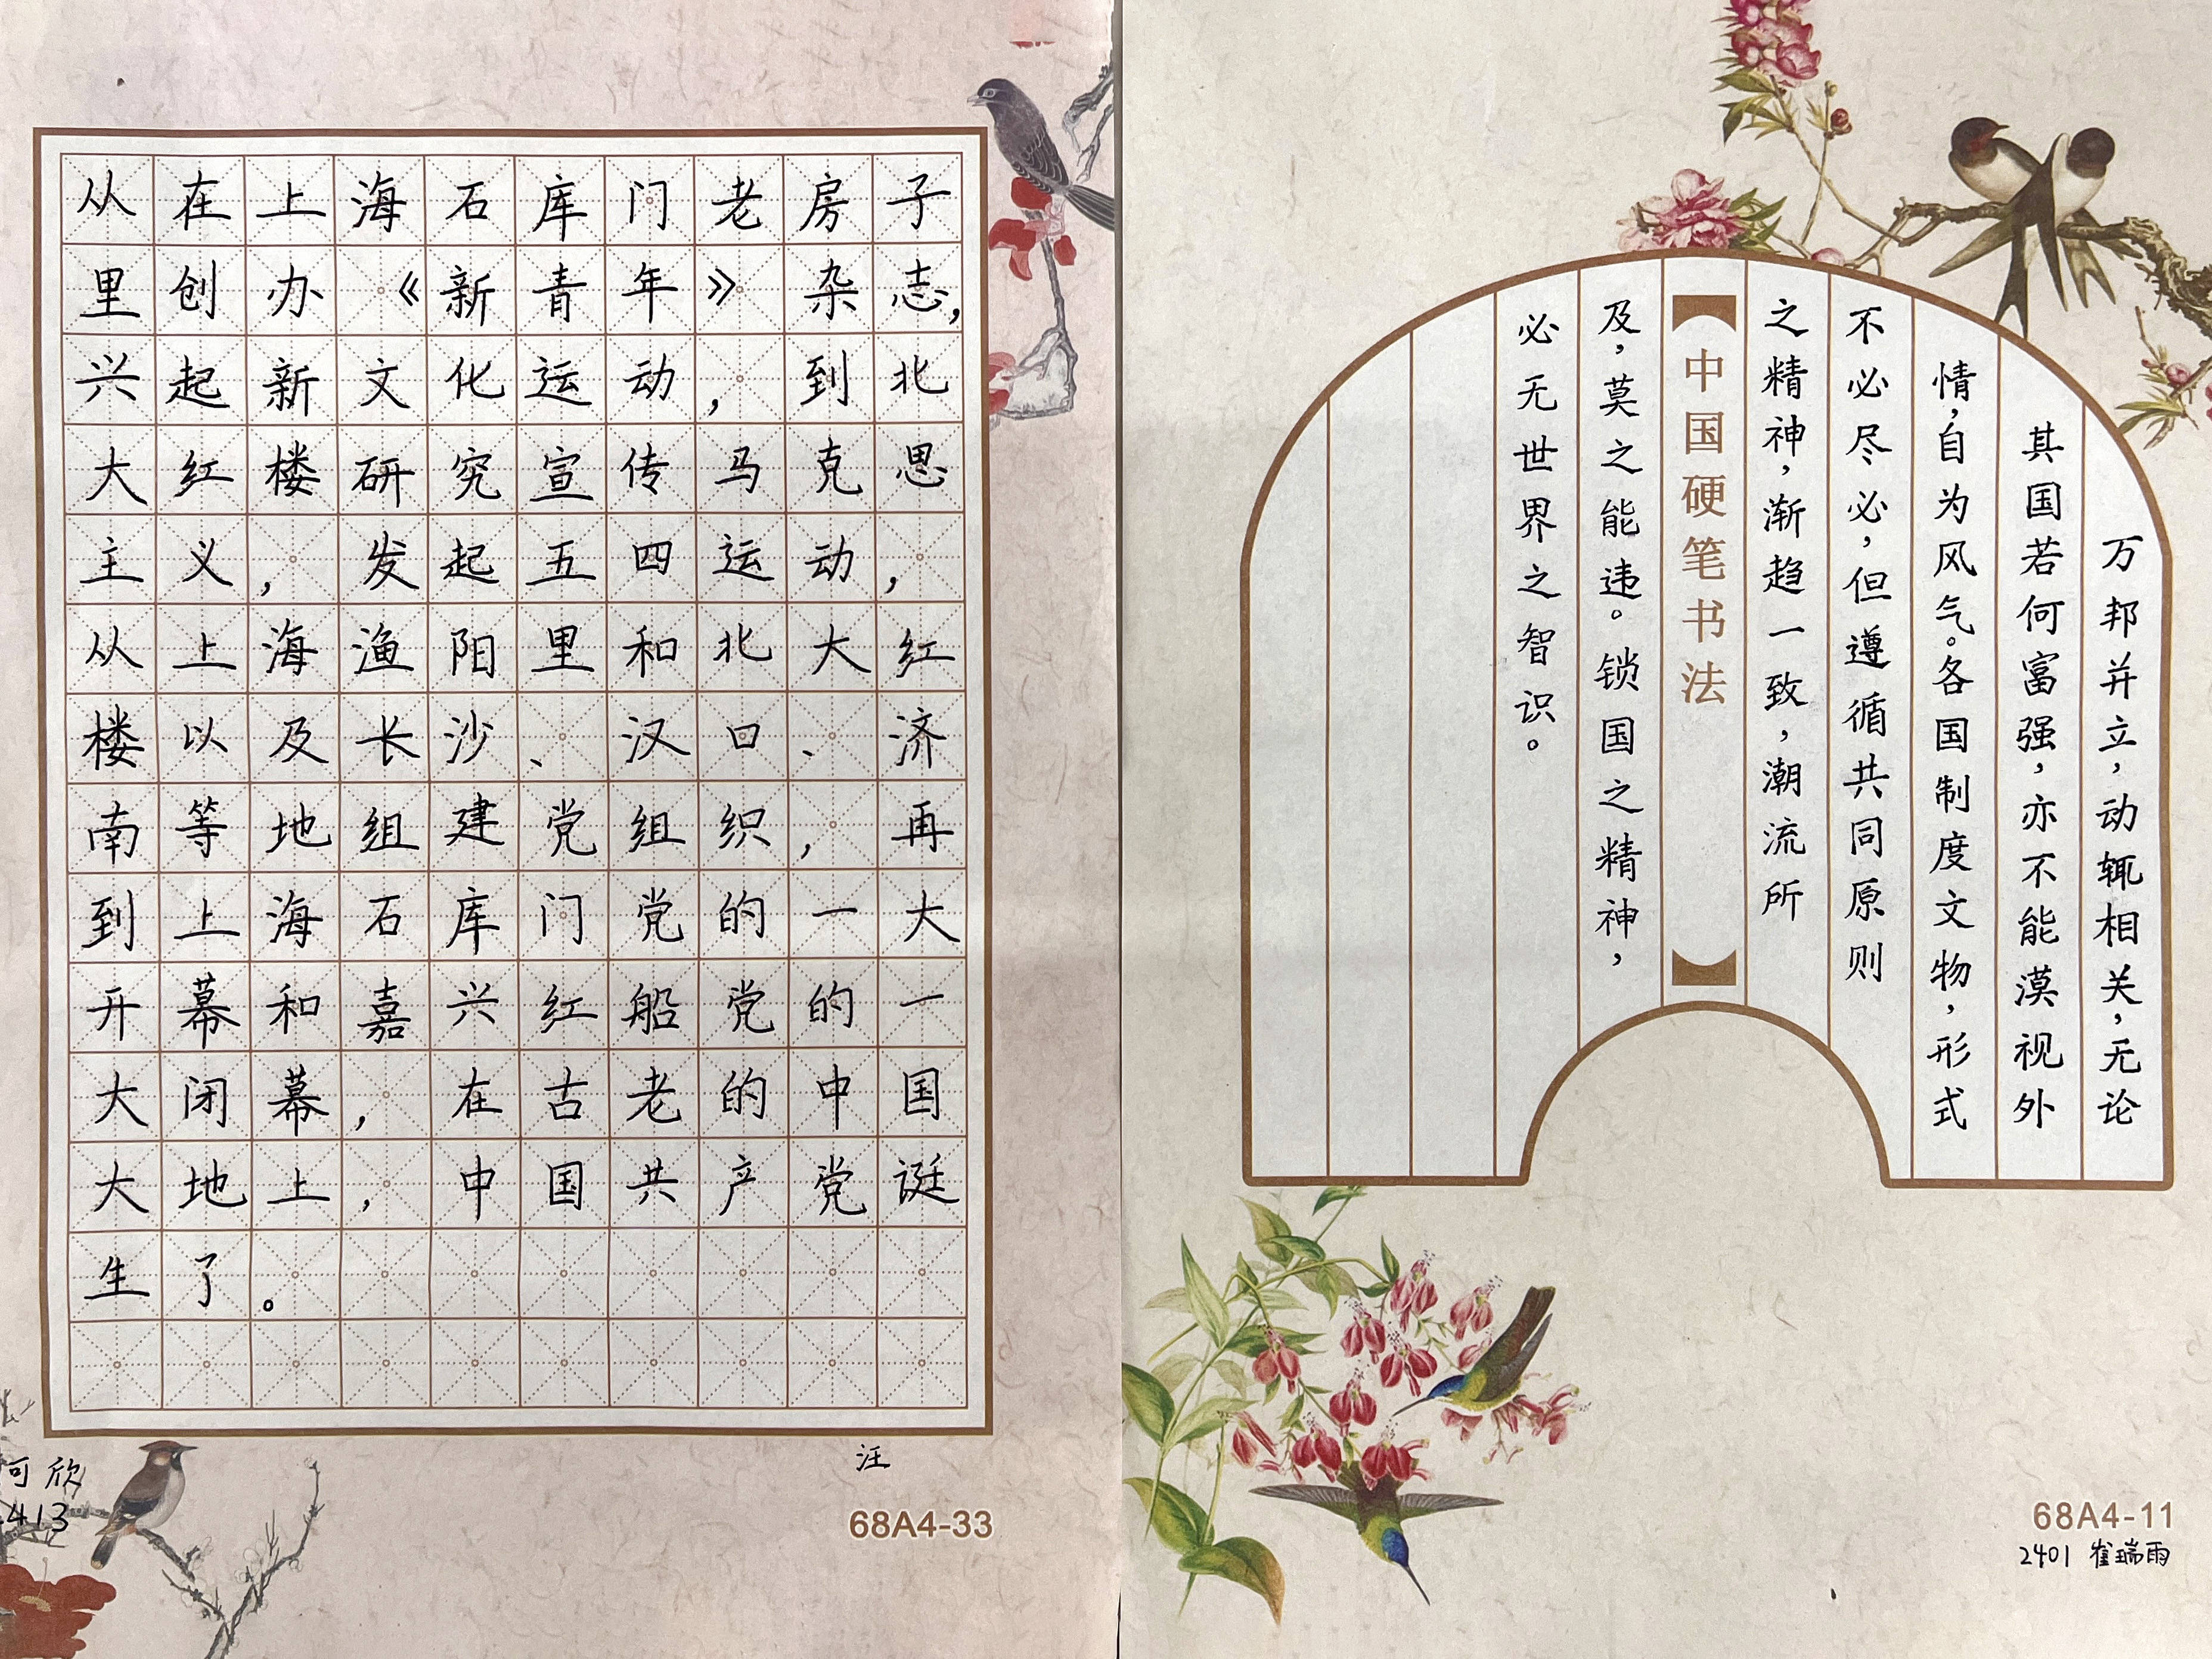 从在上海石库门老房子
里创办《新青年》杂志,
兴起新文化运动,到北
大红楼研究宣传马克思
主义,发起五四运动,
从上海渔阳里和北大红
楼以及长沙、汉口、济
南等地组建党组织,再
到上海石库门党的一大
开幕和嘉兴红船党的一
大闭幕,在古老的中国
大地上,中国共产党诞
生了。
汪
可欣
413
68A4-33
万邦并立,动辄相关,无论
其国若何富强,亦不能漠视外
情,自为风气。各国制度文物,形式
不必尽必,但遵循共同原则
之精神,渐趋一致,潮流所
中国硬笔书法
及,莫之能违。锁国之精神,
必无世界之智识。
68A4-11
2401 崔瑞雨